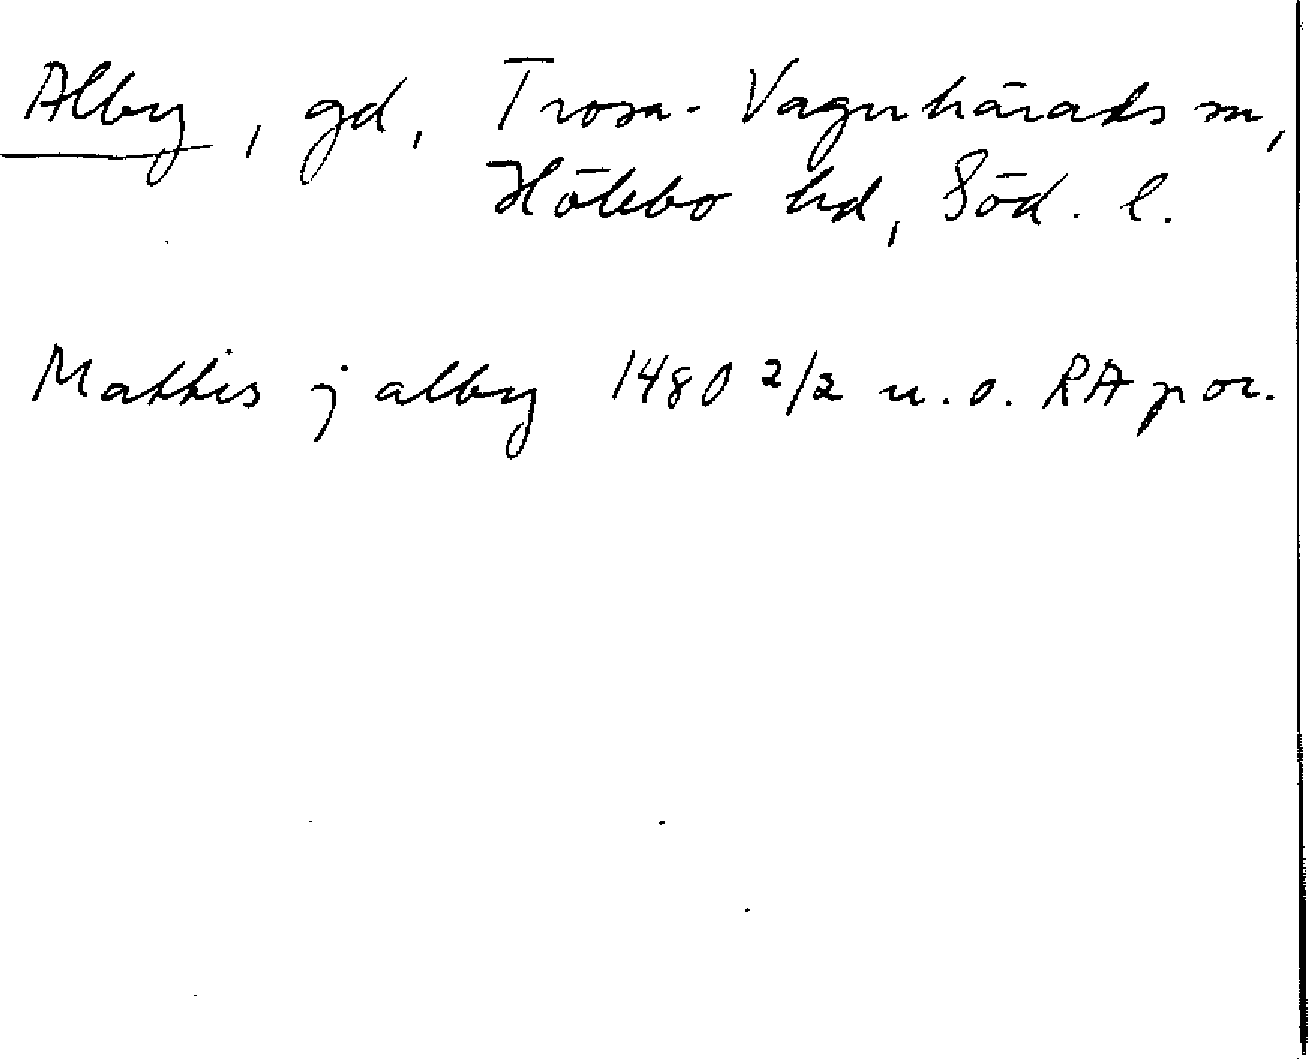 Alby, gd, Trosa-Vagnhärads sn,
Hölebo hd, Söd. l.
Mattis j alby 1480 2/2 u.o. RA p or.